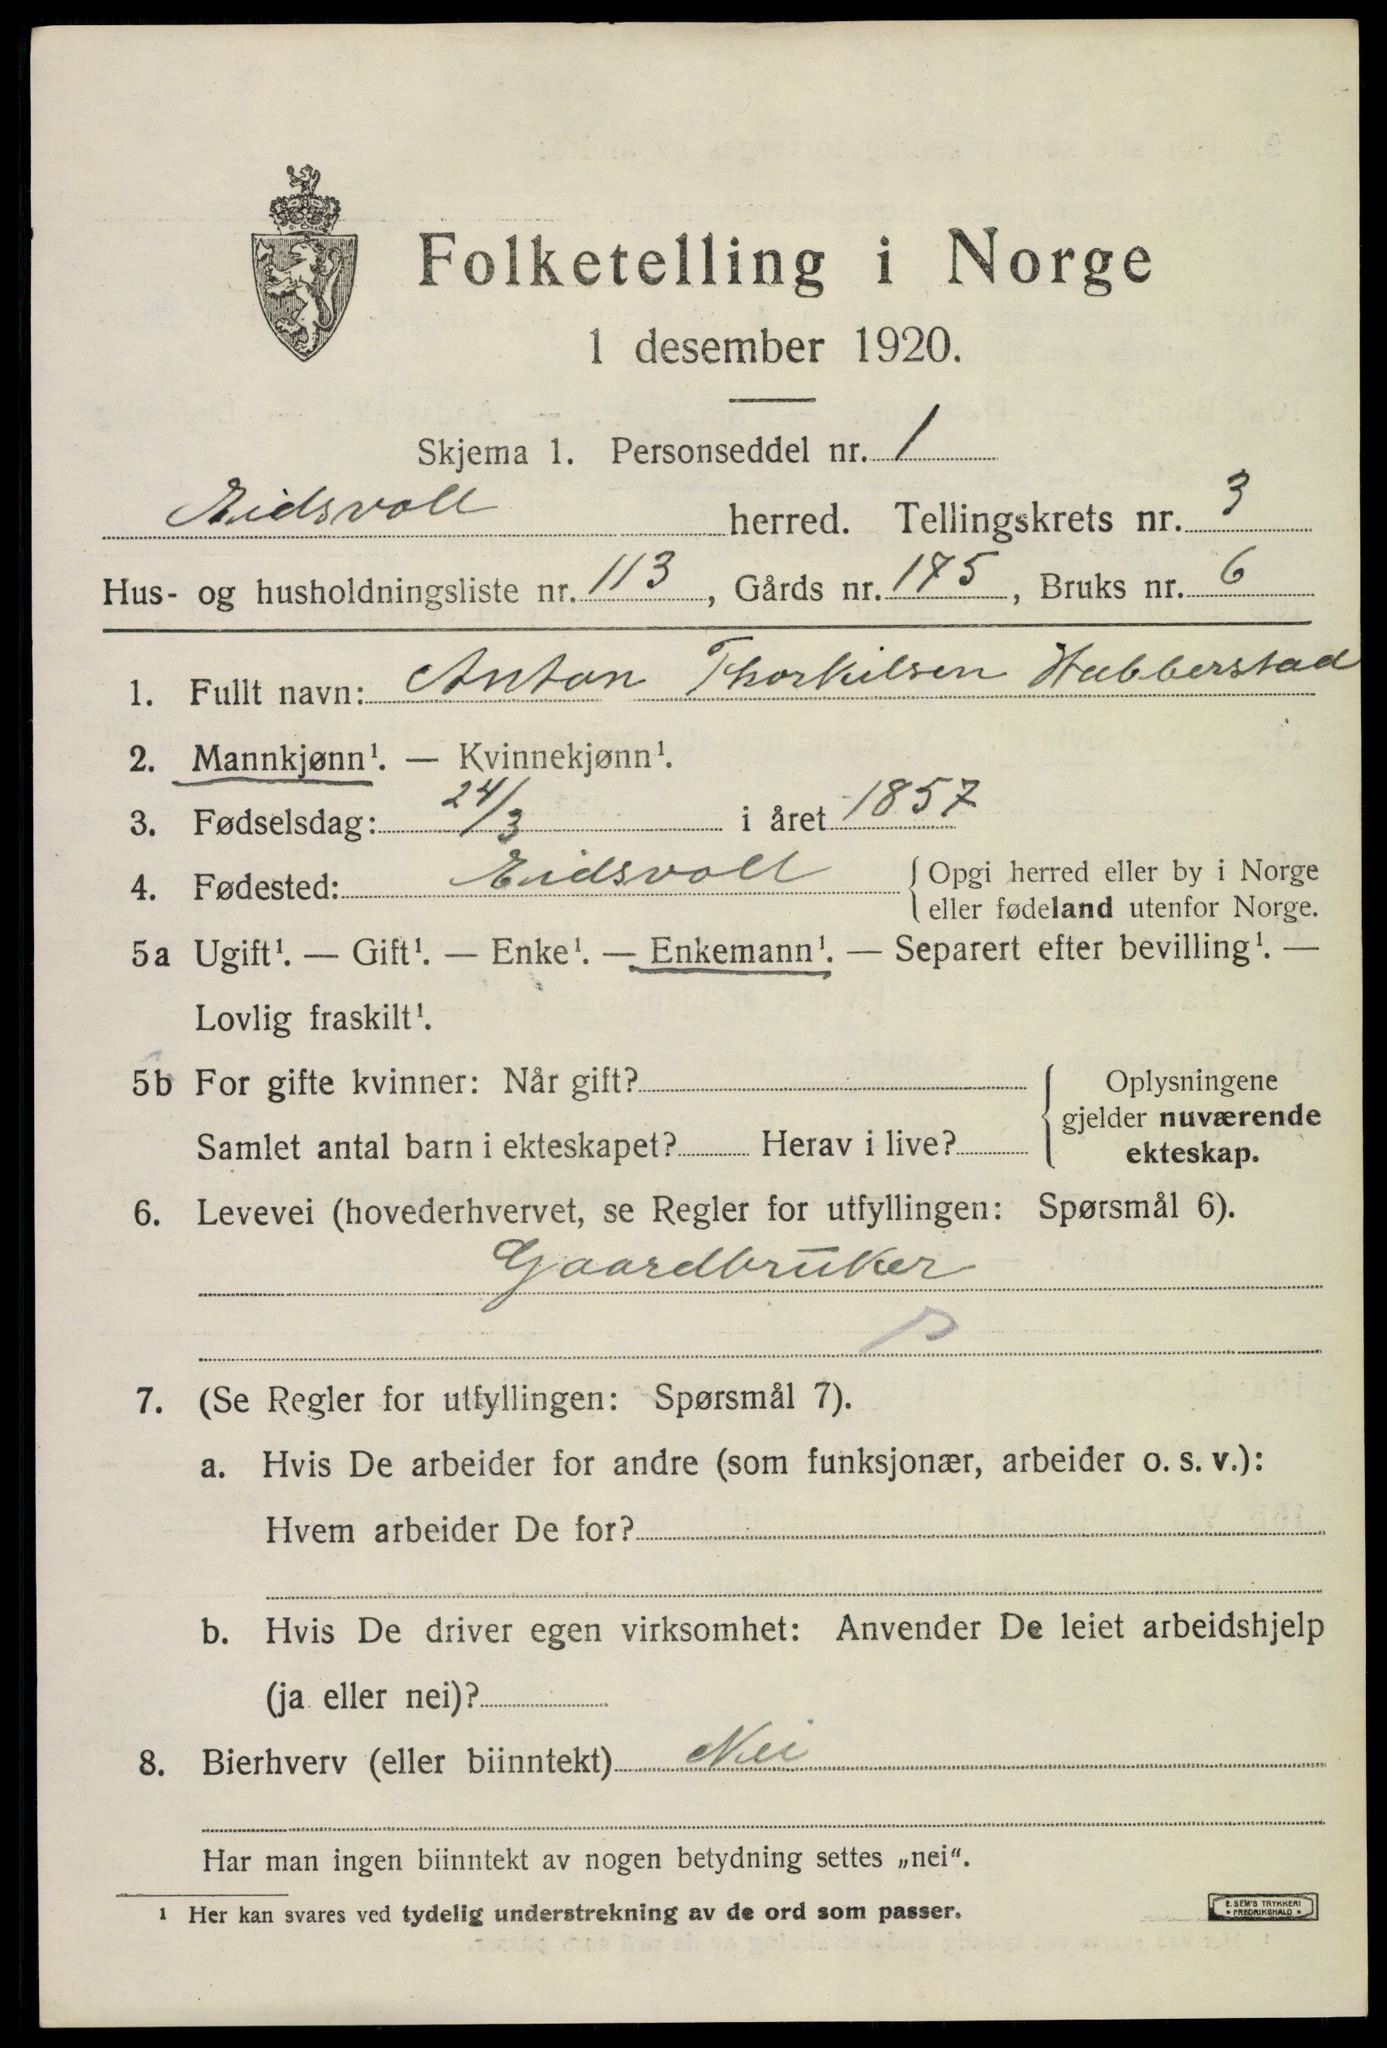 Folketelling i Norge
1 desember 1920.
Skjema 1. Personseddel nr. 1
Eidsvoll herred. Tellingskrets nr. 3
Hus- og husholdningsliste nr. 113, Gårds nr. 175, Bruks nr. 6
1. Fullt navn: Anton Thorkilsen Habberstad
2. Mannkjønn¹. — Kvinnekjønn¹.
3. Fødselsdag: 24/3 i året 1857
4. Fødested: Eidsvoll { Opgi herred eller by i Norge
eller fødeland utenfor Norge.
5a Ugift¹. — Gift¹. — Enke¹. — Enkemann¹. — Separert efter bevilling¹. —
Lovlig fraskilt¹.
5b For gifte kvinner: Når gift? { Oplysningene
gjelder nuværende
Samlet antal barn i ekteskapet? Herav i live? ekteskap.
6. Levevei (hovederhvervet, se Regler for utfyllingen: Spørsmål 6).
Gaardbruker
7. (Se Regler for utfyllingen: Spørsmål 7).
a. Hvis De arbeider for andre (som funksjonær, arbeider o. s. v.):
Hvem arbeider De for?
b. Hvis De driver egen virksomhet: Anvender De leiet arbeidshjelp
(ja eller nei)?
8. Bierhverv (eller biinntekt) Nei
Har man ingen biinntekt av nogen betydning settes „nei“.
¹ Her kan svares ved tydelig understrekning av de ord som passer.
E. SEM'S TRYKKERI
* FREDRIKSHALD *